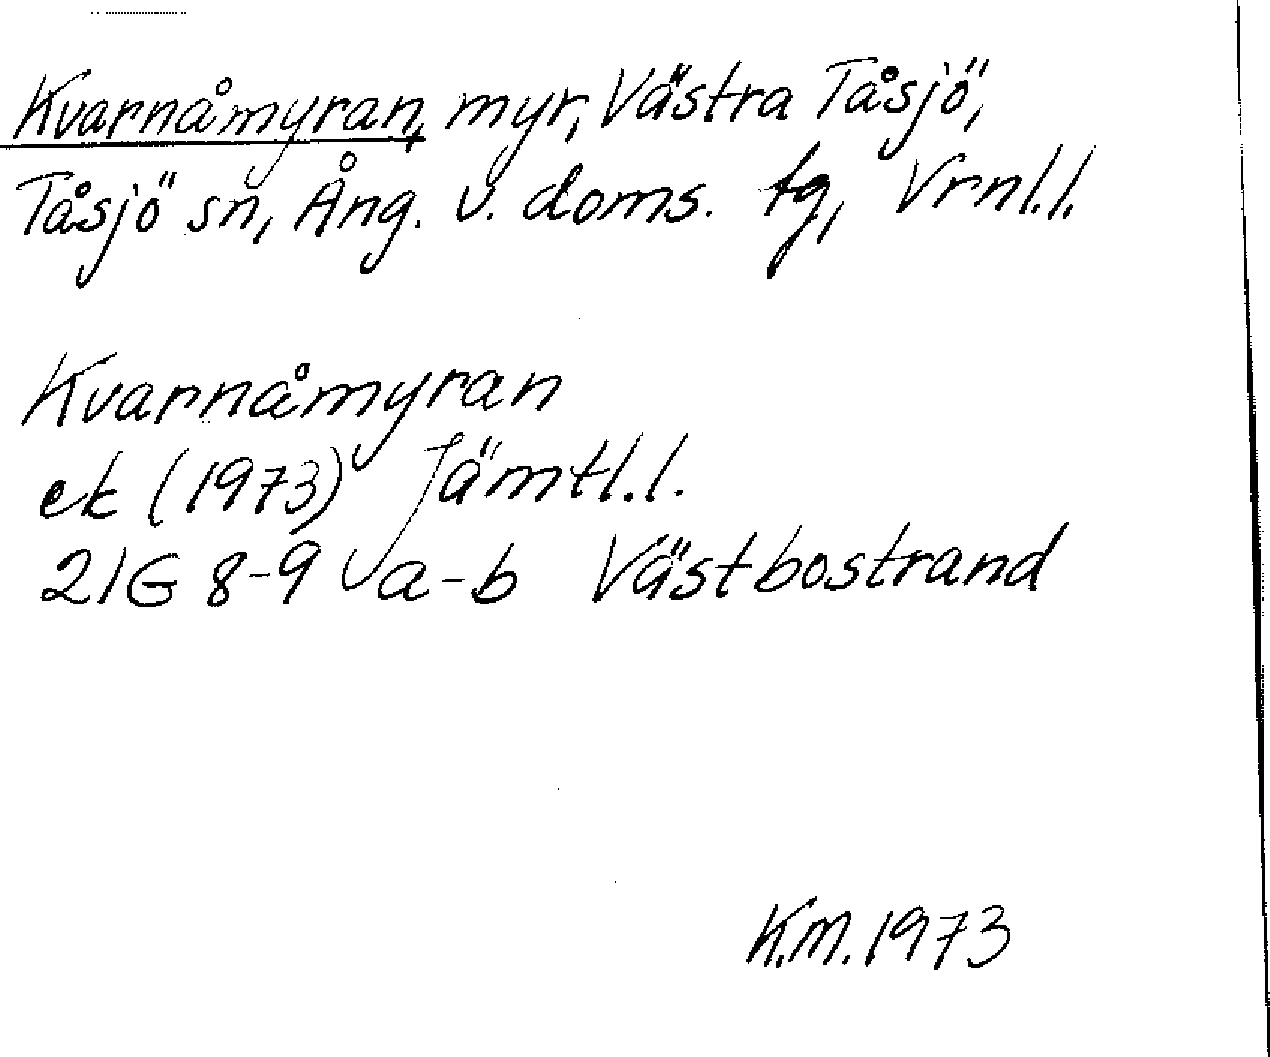 Kvarnåmyran, myr, Västra Tåsjö,
Tåsjö sn, Ång. v. doms. tg, Vrnl.l.
Kvarnåmyran
ek (1973) Jämtl.l.
21G 8-9 a-b Västbostrand
K.M. 1973